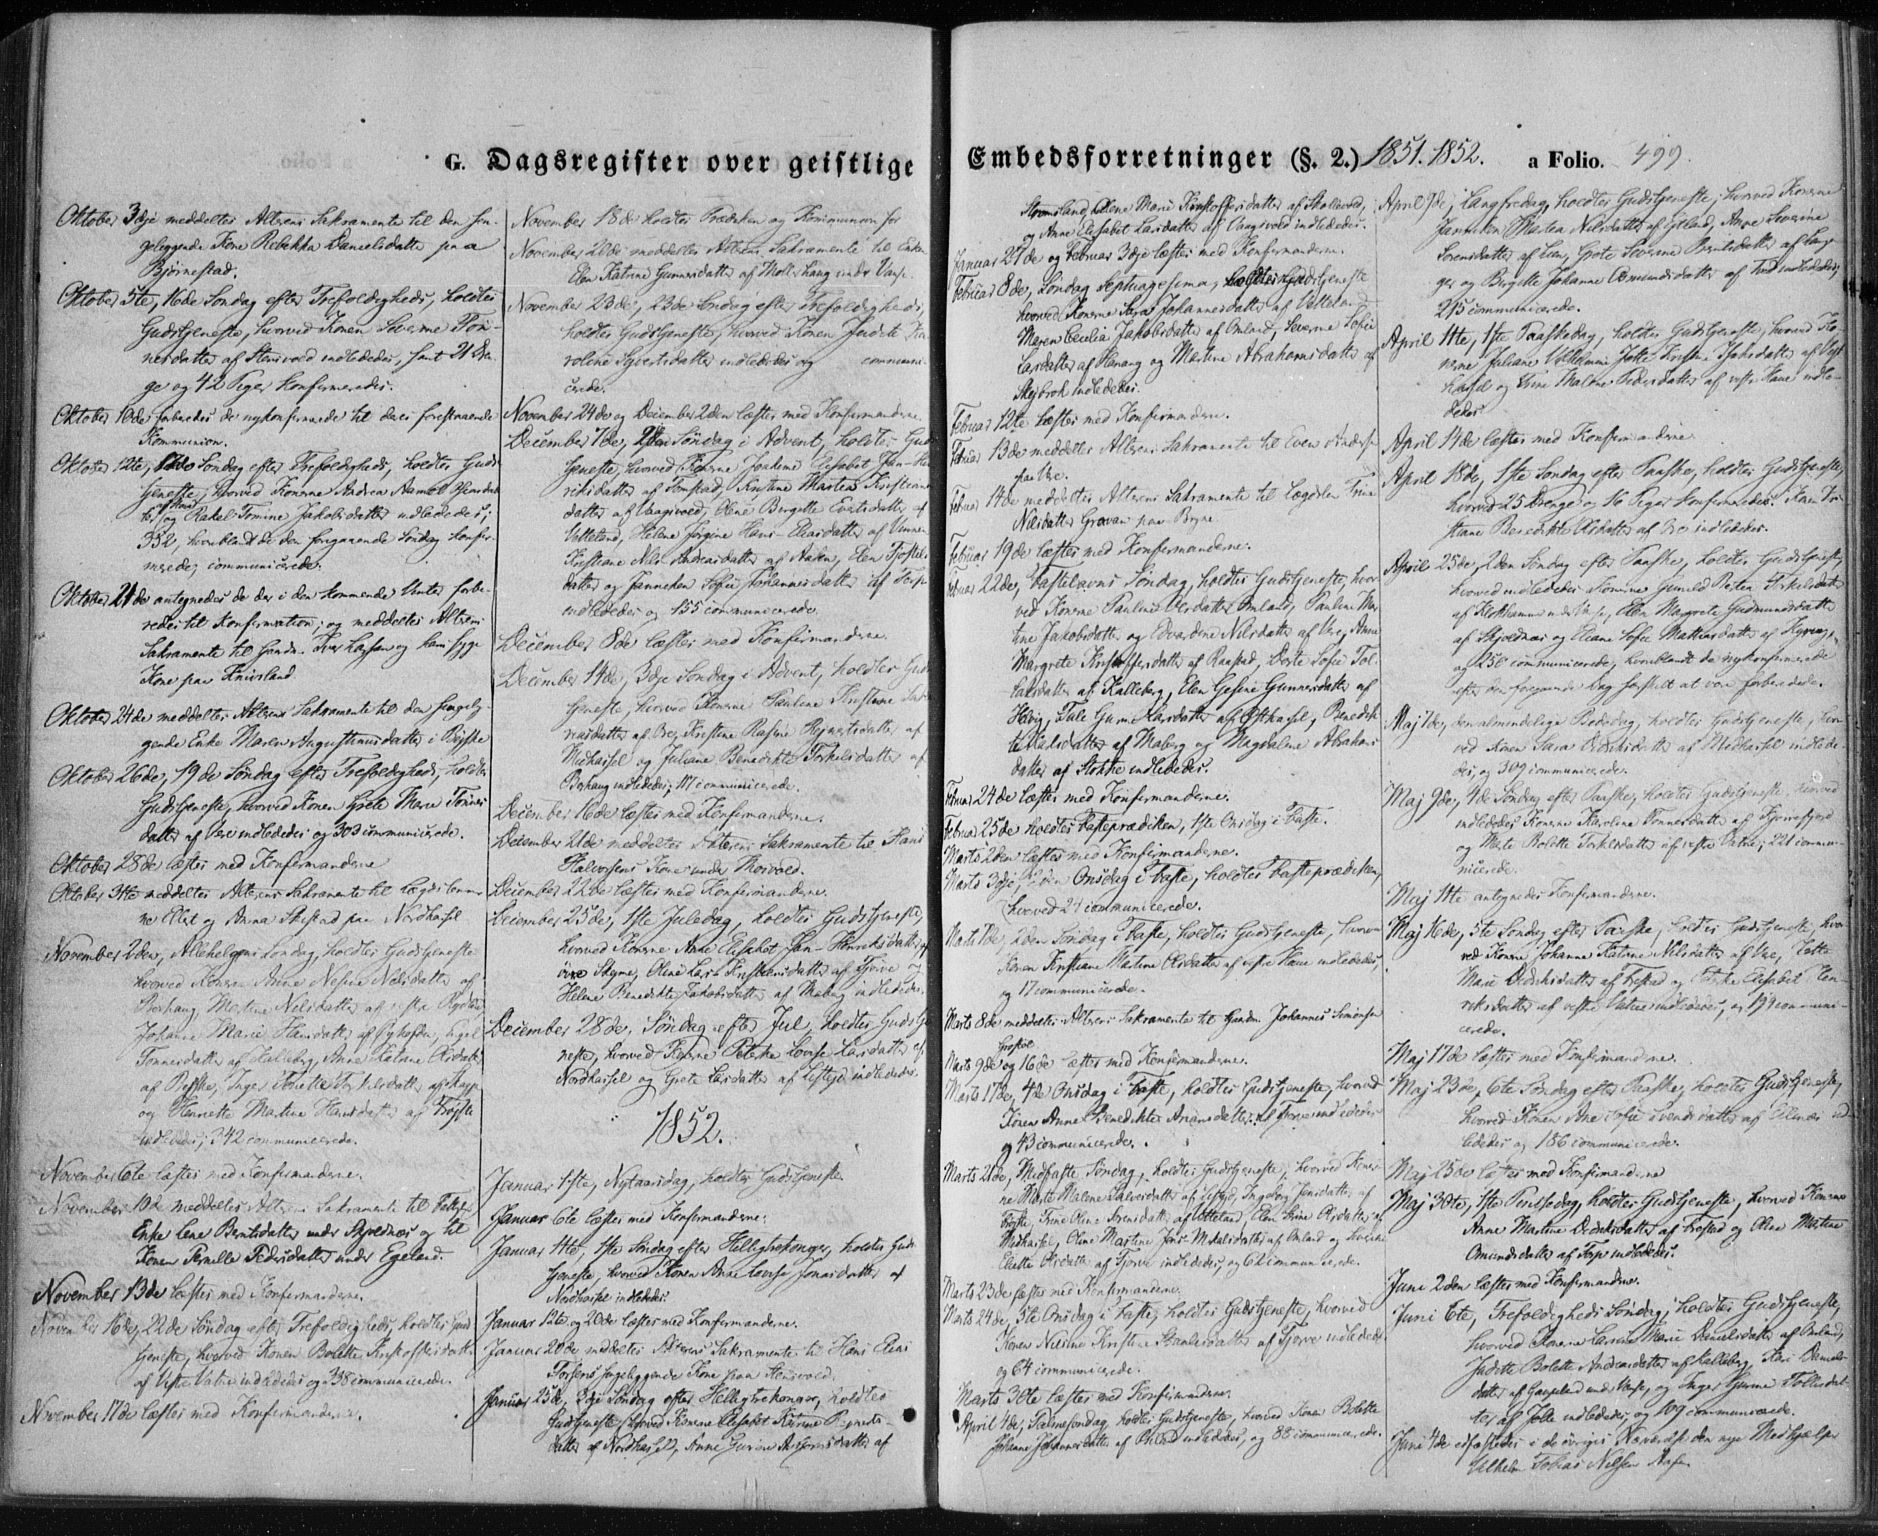 G. Dagsregister over geistlige
Oktober 3dje meddeltes Alterens Sakramente til den sen-
geliggende Kone Rebekka Danielsdatter paa
Bjørnestad.
Oktober 5te, 16de Søndag efter Trefoldigheds, holdtes
Gudstjeneste, hvorved Konen Severine Tøn-
nesdatter af Steensvold indlededes, samt 21 Dren-
ge og 42 Piger konfirmeredes.
Oktober 10de forberedes de nykonfirmerede til deres forestaaende
Kommunion.
Oktober 12te, Søndag efter Trefoldigheds, holdtes Guds-
tjeneste, hvorved Konerne Andrea
og Rakel Tomine Jakobsdatter indlededes;
352, hvoriblandt de den foregaaende Søndag konfir-
merede, communicerede.
Oktober 21de antegnedes de der i den kommende Vinter forbe-
redes til Konfirmation; og meddeltes Alterens
Sakramente til Iver Larsen og hans syge
Kone paa
Oktober 24de meddeltes Alterens Sakramente til den sengelig-
gende Enke Maren Augustinusdatter i
Oktober 26de, 19de Søndag efter Trefoldigheds, holdtes
Gudstjeneste, hvorved Konen Grete Marie Tønnes-
datter af Vere indlededes og 303 communicerede.
Oktober 28de læstes med Konfirmanderne
Oktober 31te meddeltes Alterens Sakramente til Lægdslemmer-
ne Elliot og Anna paa Nordhasel
November 2den, Allehelgens Søndag, holdtes Gudstjeneste
hvorved Konerne Anne Nilsdatter af
Borhaug, Martine Nilsdatter af vestre
Johanne Marie Hansdatter af
Tønnesdatter af Kalleberg, Anne Olsdatter
af Inger Torkelsdatter af
og Henriette Martine Hansdatter af
indlededes; 342 communicerede.
November 6te læstes med Konfirmanderne.
November 10de meddeltes Alterens Sakramente til
Enke Lene Berntsdatter under Skjoldnæs og til
Konen Pernille Pedersdatter under Egeland.
November 13de læstes med Konfirmanderne
November 16de, 22de Søndag efter Trefoldigheds, holdtes Guds-
tjeneste, hvorved Konen Bolette Kristoffersdatter
af Vestre Vatne indlededes og 38 communicerede.
November 17de læstes med Konfirmanderne.
November 18de holdtes Prædiken og Kommunion for
November 20de meddeltes Alterens Sakramente til Enken
Elen Katrine Gunnersdatter af under Vanse.
November 23de, 23de Søndag efter Trefoldigheds,
holdtes Gudstjeneste, hvorved Konen Judite Ka-
roline Syvertsdatter indlededes og communi-
cerede.
November 24de og December 2den læstes med Konfirmanderne.
December 7de, 2den Søndag i Advent, holdtes Guds-
tjeneste, hvorved Konerne Joakime Elisabet Jan-Hen-
riksdatter af Tomstad, Kristine Martene
datter af Vaagsvold, Oline Birgitte datter af
Vetteland, Helene Jørgine Hans-Eliasdatter af
Kristiane Nils-Andreasdatter af Elen
datter og Janneken Sofie Johannesdatter af Torp
indlededes og 155 communicerede.
December 8de læstes med Konfirmanderne
December 14de, 3dje Søndag i Advent, holdtes Guds-
tjeneste, hvorved Konerne Pauline Kristiane
datter af Bre, Kirstine Rasine Reinertsdatter af
Midhasel og Juliane Benedikte Torkelsdatter af
Borhaug indlededes; 111 communicerede.
December 16de læstes med Konfirmanderne.
December 21de meddeltes Alterens Sakramente til Hans
Halvorsens Kone under
December 22de læstes med Konfirmanderne.
December 25de, 1ste Juledag, holdtes Gudstjeneste,
hvorved Konerne Anne Elisabet Jan-Henriksdatter af
Oline Lars-Kristensdatter af Tjørve og
Helene Benedikte Jakobsdatter af Maberg indlededes.
December 28de, Søndag efter Jul, holdtes Gudstje-
neste, hvorved Konerne Peterke Lovise Larsdatter af
Nordhassel og Grete Larsdatter af indlededes.
1852.
Januar 1ste, Nytaarsdag, holdtes Gudstjeneste
Januar 6te læstes med Konfirmanderne.
Januar 11te, 1ste Søndag efter Helligtrekonger, holdtes Guds-
tjeneste, hvorved Konen Anne Lovise Jonasdatter af
Nordhasel indlededes.
Januar 12te og 20de læstes med Konfirmanderne.
Januar 20de meddeltes Alterens Sakramente til Hans Elias
Torsens sygeliggende Kone paa Steensvold.
Januar 25de, 3dje Søndag efter Helligtrekonger, holdtes
Gudstjeneste, hvorved Konerne Elisabet Katrine Reinerts-
datter af Nordhasel, Anne Gurine datter af
Embedsforretninger (§. 2.) 1851. 1852. a Folio. 499.
Oline Marie Kristoffersdatter af
og Anne Elisabet Larsdatter af Vaagsvold indlededes.
Januar 27de og Februar 3dje læstes med Konfirmanderne.
Februar 8de, Søndag Septuagesima, holdtes Gudstjeneste
hvorved Konerne Sara Johannesdatter af Vetteland
Maren Cecilia Jakobsdatter af Omland, Severine Sofie
Larsdatter af og Martine Abrahamsdatter af
Skeibrok indlededes.
Februar 12te læstes med Konfirmanderne.
Februar 13de meddeltes Alterens Sakramente til Even Anders
paa Ore.
Februar 14de meddeltes Alterens Sakramente til Lægdslem Trine
Nilsdatter Gravan paa Bryne.
Februar 19de læstes med Konfirmanderne.
Februar 22de, Fastelavns Søndag, holdtes Gudstjeneste, hvor-
ved Konerne Pauline Olsdatter Omland, Pauline Mar-
tine Jakobsdatter og Edvardine Nilsdatter af Vere, Anne
Margrete Kristoffersdatter af Raastad, Berte Sofie Tol-
laksdatter af Kalleberg, Elen Gesine Gunnersdatter af
Helvig, Tale Gurine Larsdatter af Østhasel, Benedik-
te Nilsdatter af Maberg og Magdalene Abrahams-
datter af Stokke indlededes.
Februar 24de læstes med Konfirmanderne.
Februar 25de holdtes Fasteprædiken, 1ste Onsdag i Faste.
Marts 2den læstes med Konfirmanderne.
Marts 3dje, 2den Onsdag i Faste, holdtes Fasteprædiken,
hvorved 21 communicerede.
Marts 7de, 2den Søndag i Faste, holdtes Gudstjeneste, hvorved
Konen Kristiane Martine Olsdatter af vestre Haue indlededes,
og 17 communicerede.
Marts 8de meddeltes Alterens Sakramente til Johannes Simonsen
Marts 9de og 16de læstes med Konfirmanderne.
Marts 17de, 4de Onsdag i Faste, holdtes Gudstjeneste, hvorved
Konen Anne Benedikte af Tjørve indlededes
og 43 communicerede.
Marts 21de, Midfaste Søndag, holdtes Gudstjeneste, hvorved Koner-
ne Marte Malene Salvesdatter af Ingeborg Jensdatter af
Trine Oline datter af Vetteland, Elen Stine Olsdatter af
Midhasel, Oline Martine datter af Omland og
Eliette Olsdatter af Tjørve indlededes, og 62 communicerede.
Marts 23de læstes med Konfirmanderne.
Marts 24de, 5te Onsdag i Faste, holdtes Gudstjeneste, hvorved
Konen Nilsine Kristine datter af Tjørve indlededes
og 64 communicerede.
Marts 30te læstes med Konfirmanderne.
April 4de, Palmesøndag, holdtes Gudstjeneste, hvorved Konen Bolette
Johanne Johannesdatter af indlededes, og 88 communicerede.
April 9de, Langfredag, holdtes Gudstjeneste, hvorved Konerne
Janniken Marten Nilsdatter af Anne Severine
Sørensdatter af Lien, Grete Severine Berntsdatter af
og Birgitte Johanne Osmundsdatter af indlededes;
215 communicerede.
April 11te, 1ste Paaskedag, holdtes Gudstjeneste, hvorved Ko-
nerne Juliane Vilhelmine Jakobsdatter af Vest-
hasel og Trine Malene Pedersdatter af vestre Haue indle-
dedes.
April 14de læstes med Konfirmanderne
April 18de, 1ste Søndag efter Paaske, holdtes Gudstjeneste,
hvorved 25 Drenge og 16 Piger konfirmeredes. Karen Kri-
stiane Benedikte Olsdatter af Bre indlededes.
April 25de, 2den Søndag efter Paaske, holdtes Gudstjeneste,
hvorved indlededes Tomine Gunild
af under Vanse, Elen Margrete Gudmundsdatter
af Skjoldnæs og Eliane Sofie Mathiasdatter af
og 250 communicerede, hvoriblandt de nykonfirmerede
efter den foregaaende Dag særskilt at være forberedede.
Maj 7de, den almindelige Bededag, holdtes Gudstjeneste, hvor-
ved Konen Sara Didriksdatter af Midhasel indlede-
des, og 309 communicerede.
Maj 9de, 4de Søndag efter Paaske, holdtes Gudstjeneste, hvorved
indlededes Konerne Karoline Tønnesdatter af
og Marte Bolette Torkelsdatter af vestre Vatne; 221 commu-
nicerede.
Maj 11te antegnedes Konfirmanderne.
Maj 16de, 5te Søndag efter Paaske, holdtes Gudstjeneste, hvor-
ved Konerne Johanne Katrine Nilsdatter af Vere,
Marie Didriksdatter af og Elisabet Hen-
riksdatter af vestre Vatne indlededes, og 199 communi-
cerede.
Maj 17de læstes med Konfirmanderne.
Maj 23de, 6te Søndag efter Paaske, holdtes Gudstjeneste,
hvorved Konen Ane Sofie Svendsdatter af Ellenæs ind-
lededes og 186 communicerede.
Maj 25de læstes med Konfirmanderne
Maj 30te, 1ste Pintsedag, holdtes Gudstjeneste, hvorved Konerne
Anne Martine Didriksdatter af og Oline Martine
Omundsdatter af Torp indlededes.
Juni 2den læstes med Konfirmanderne.
Juni 6te, Trefoldigheds Søndag, holdtes Gudstjeneste,
hvorved Konerne Larsine Marie Danielsdatter af Omland,
Judithe Bolette Andreasdatter af Kalleberg, Daniels-
datter af Gaupeland under Vanse, og Inger Gurine Tollisdat-
ter af Jolle indlededes, og 109 communicerede.
Juni 4de edfæstedes i de øvriges Nærværelse den nye Medhjelper
Vilhelm Tobias Nilsen